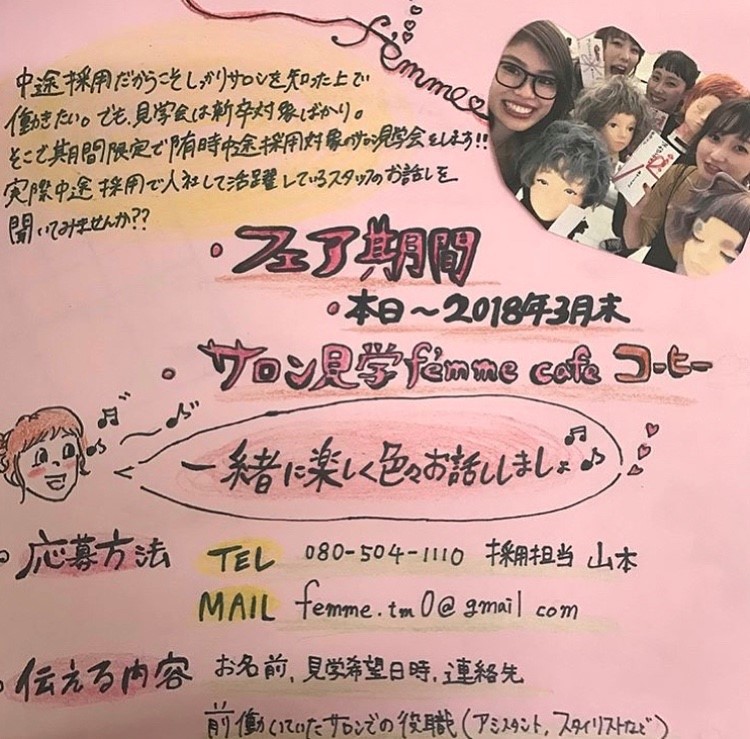 femme
中途採用だからこそしっかりサロンを知った上で
働きたい。でも、見学会は新卒対象ばかり。
そこで期間限定で随時中途採用対象のサロン見学会をします!!
実際中途採用で入社して活躍しているスタッフのお話しを
聞いてみませんか??
・フェア期間
・本日〜2018年3月末
・サロン見学 femme cafe コーヒー
一緒に楽しく色々お話ししましょ
・応募方法 TEL 080-504-1110 採用担当 山本
MAIL femme.tm0@gmail com
・伝える内容 お名前、見学希望日時、連絡先
前働いていたサロンでの役職(アシスタント、スタイリストなど)